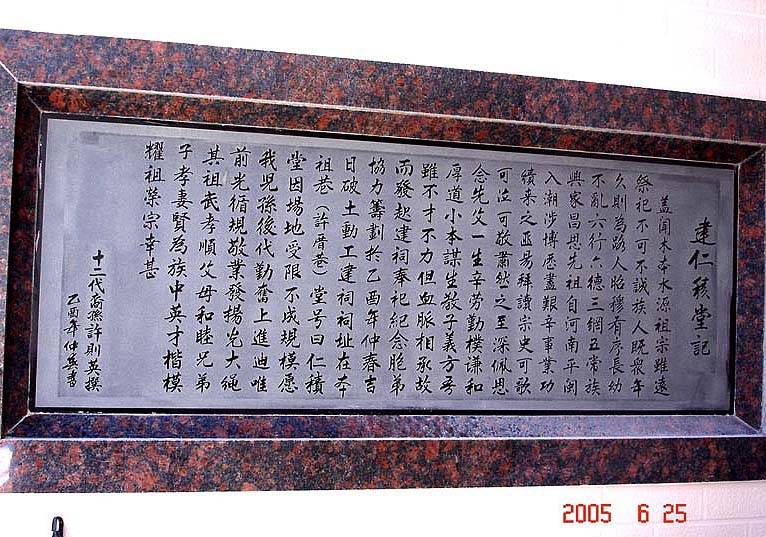 建仁積堂記
蓋聞木本水源祖宗雖遠
祭祀不可不誠族人既眾年
久則為路人昭穆有序長幼
不亂六行六德三綱五常族
興家昌思先祖自河南平閩
入潮涉博歷盡艱辛事業功
績來之匪易拜讀宗史可歌
可泣可敬肅然之至深佩恩
念先父一生辛勞勤樸謙和
厚道小本謀生教子義方吾
雖不才不力但血脈相承故
而發起建祠奉祀紀念胞弟
協力籌劃於乙酉年仲春吉
日破土動工建祠祠址在本
祖巷（許厝巷）堂号曰仁積
堂因場地受限不成規模愿
我兒孫後代勤奮上進迪唯
前光循規敬業發揚光大繩
其祖武孝順父母和睦兄弟
子孝妻賢為族中英才楷模
耀祖榮宗幸甚
十二代裔孫許則英撰
乙酉年仲英書
2005 6 25